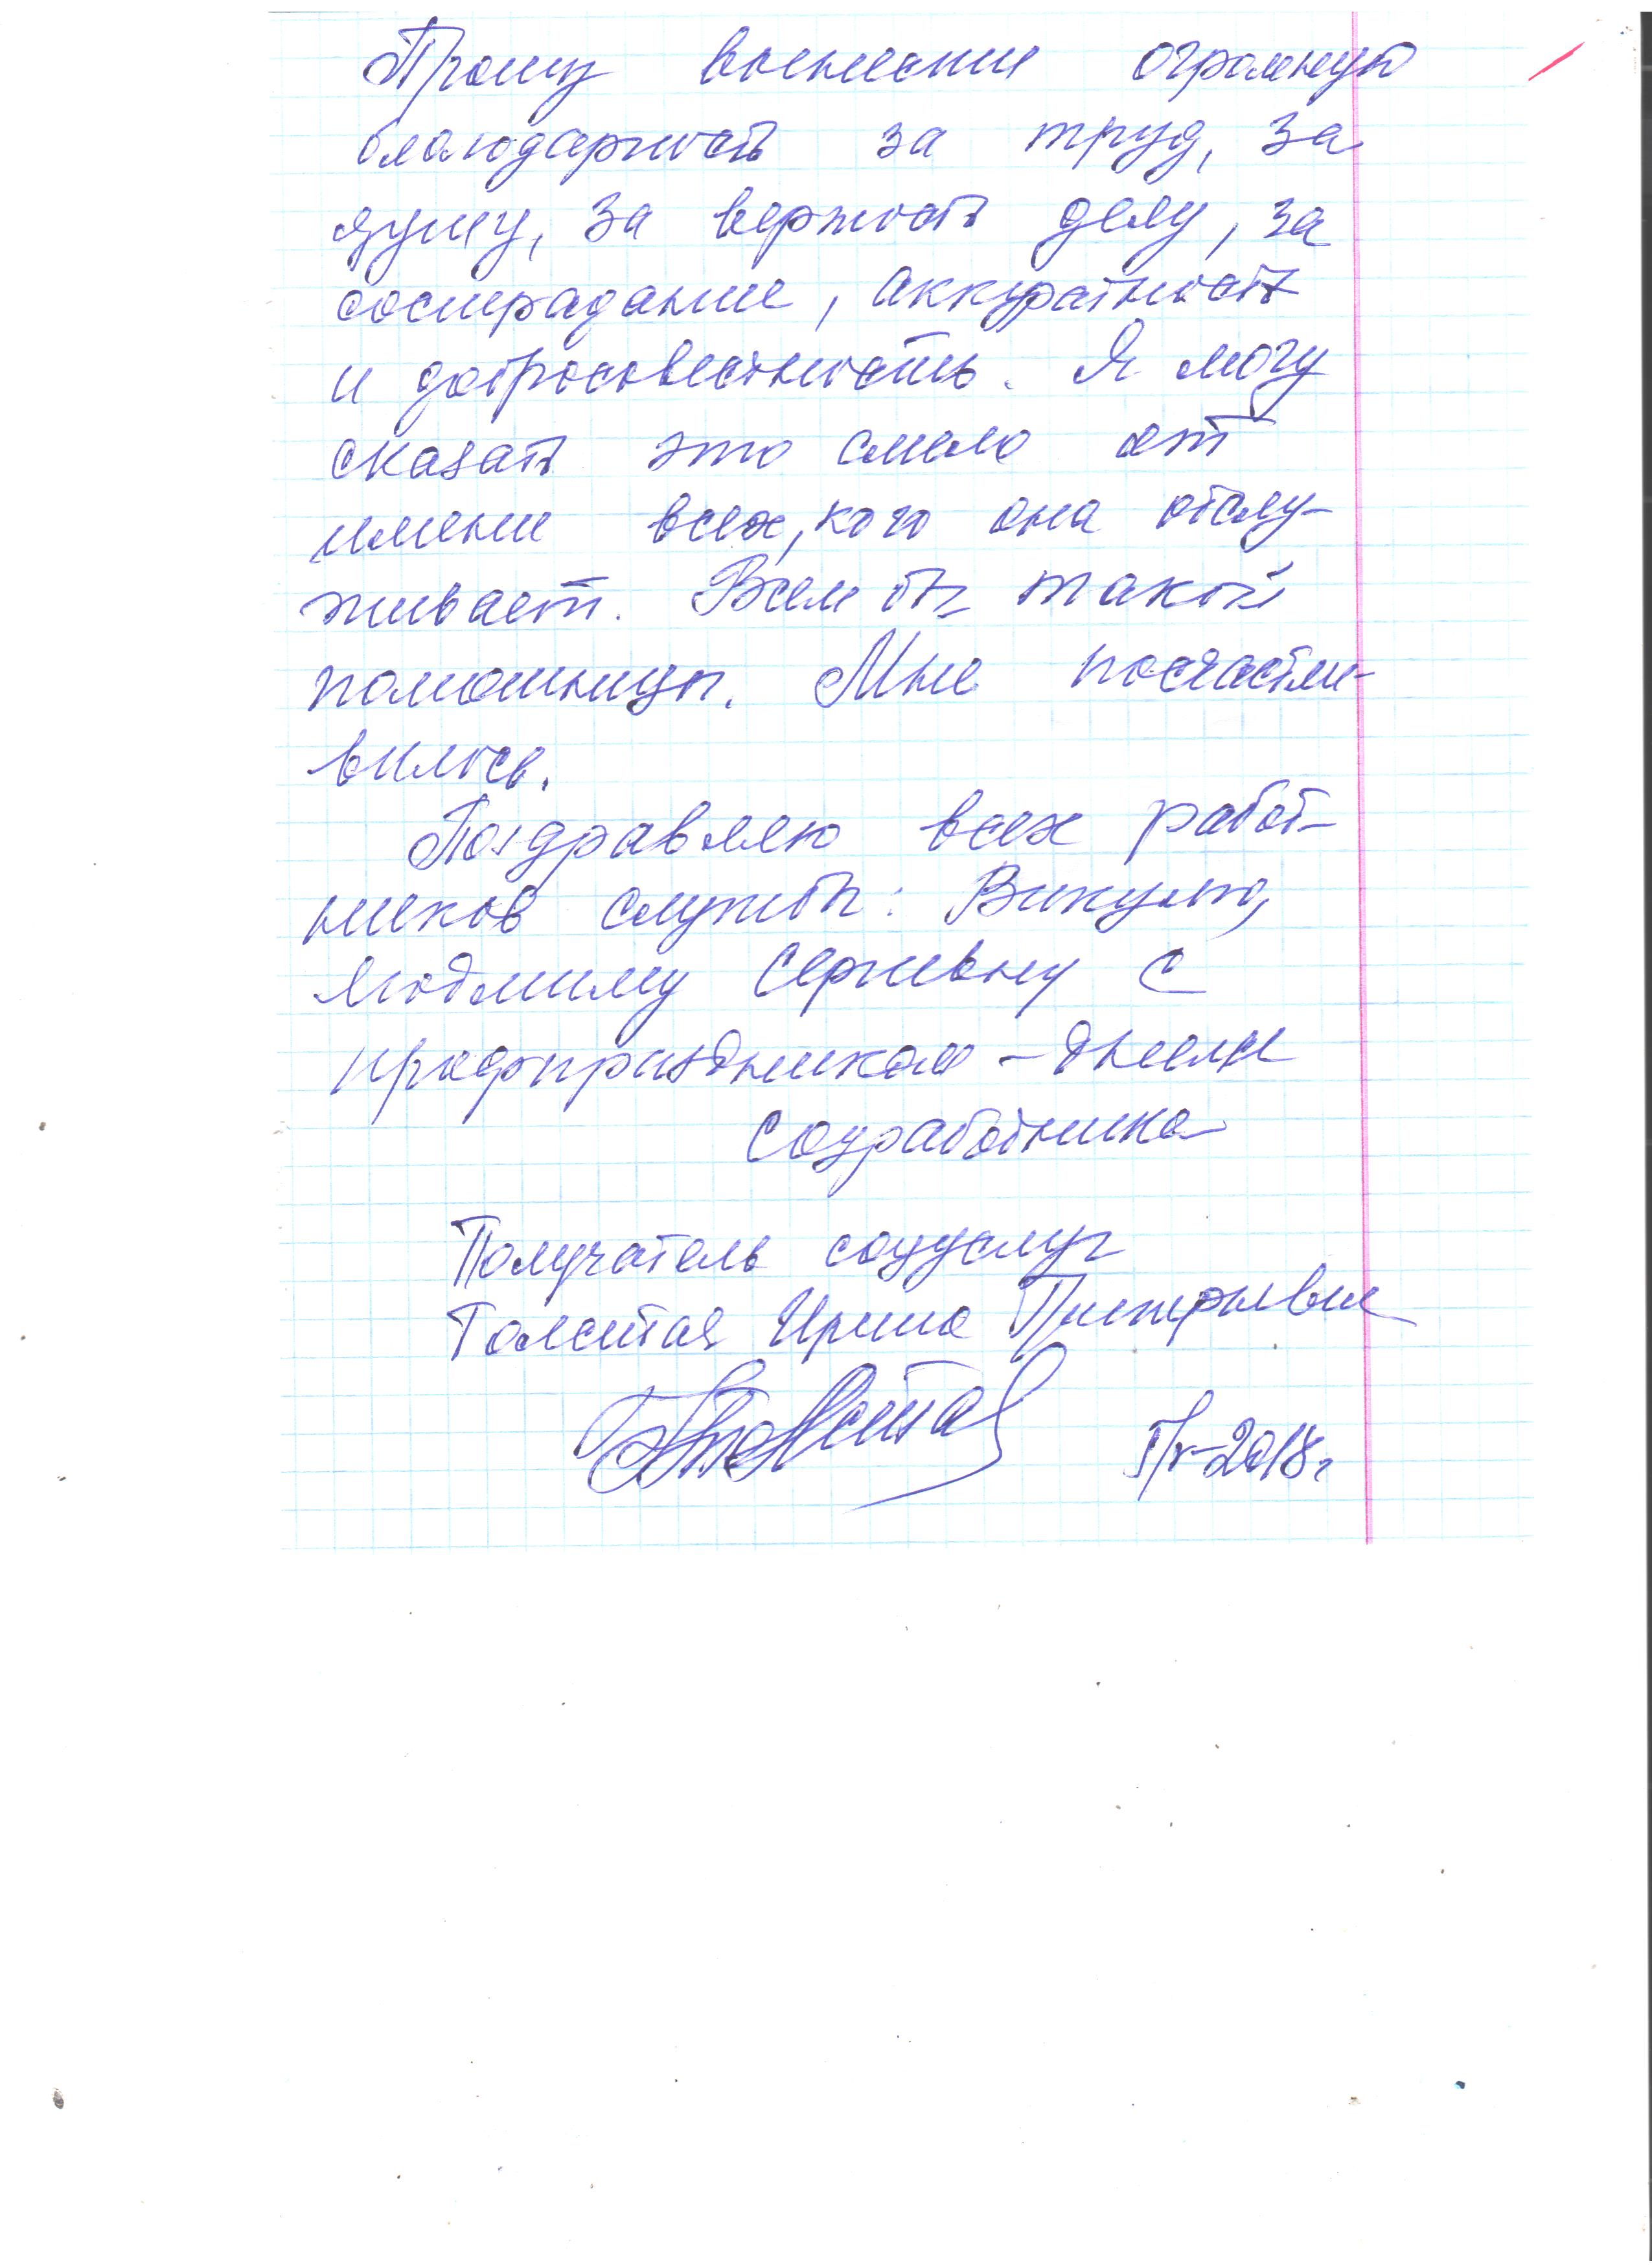 Прошу вынесити огромную
благодарность за труд, за
душу, за верность делу, за
сострадание, аккуратность
и добросовестность. Я могу
сказать это смело от
имени всех, кого она обслу-
живает. Всем бы такой
помощницы. Мне посчастли-
вилось.
Поздравляю всех работ-
ников службы: Викулю,
Людмилу Сергевну с
профпраздником - днём
соцработника
Получатель соцуслуг
Толстая Ирина
2018г